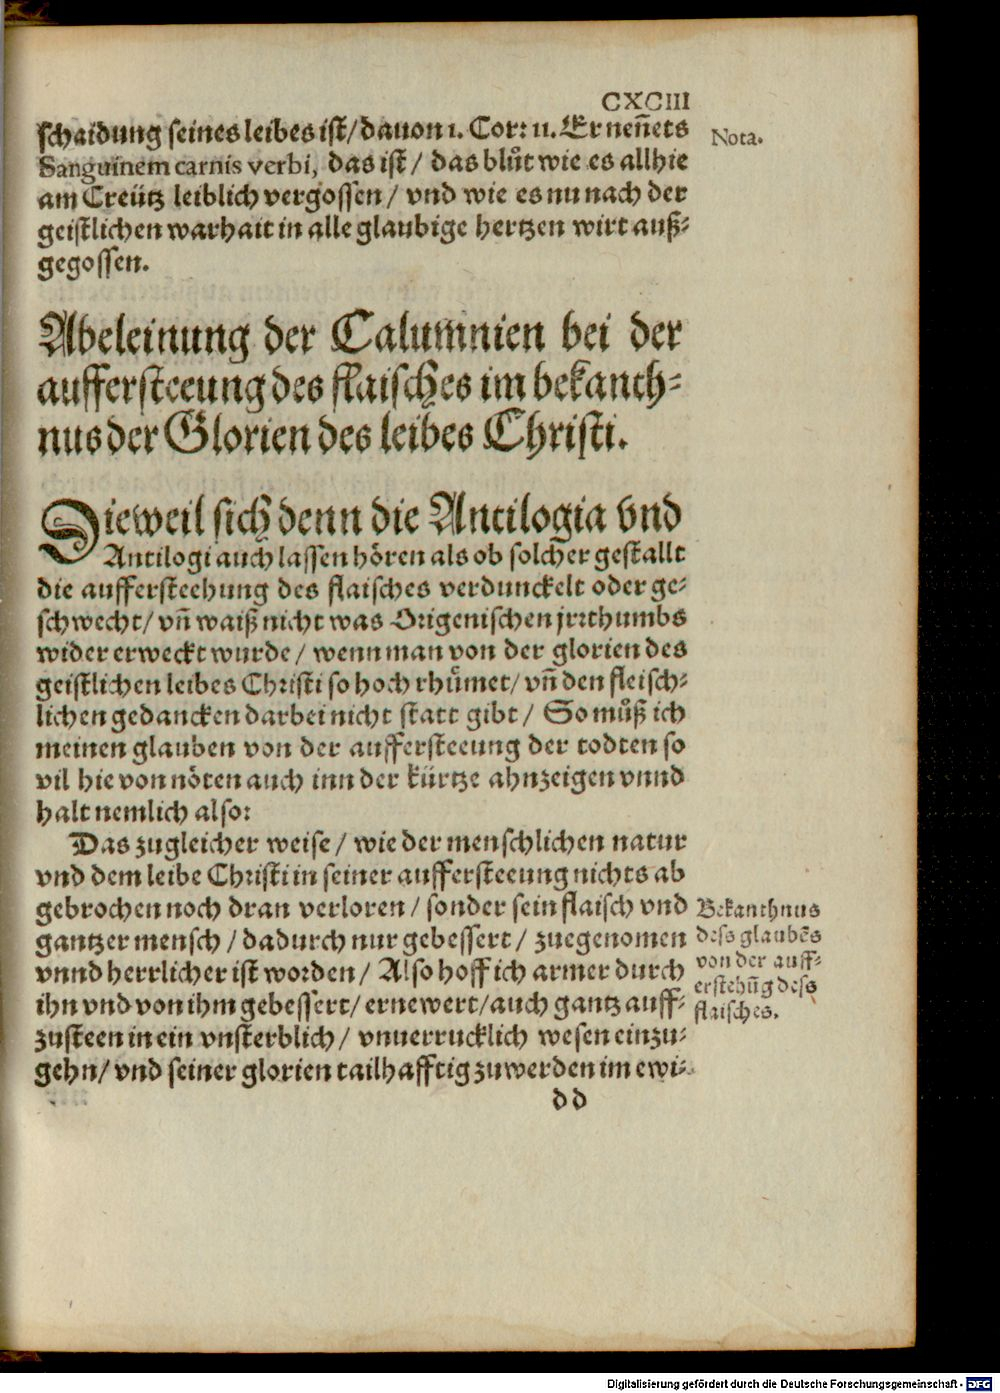 CXCIII
schaidung seines leibes ist/dauon 1. Cor: 11. Er neñets
Nota.
Sanguinem carnis verbi, das ist/ das blůt wie es allhie
am Creütz leiblich vergossen/ vnd wie es nu nach der
geistlichen warhait in alle glaubige hertzen wirt auß-
gegossen.
Abeleinung der Calumnien bei der
aufferste​eung des flaisches im bekanth-
nus der Glorien des leibes Christi.
Dieweil sich denn die Antilogia vnd
Antilogi auch lassen hören als ob solcher gestallt
die aufferstechung des flaisches verdunckelt oder ge-
schwecht/ vñ waiß nicht was Origenischen jrrthumbs
wider erweckt wurde/ wenn man von der glorien des
geistlichen leibes Christi so hoch rhůmet/ vñ den fleisch-
lichen gedancken darbei nicht statt gibt/ So můß ich
meinen glauben von der auffersteeung der todten so
vil hie von nöten auch inn der kürtze ahnzeigen vnnd
halt nemlich also:
Das zugleicher weise/ wie der menschlichen natur
vnd dem leibe Christi in seiner auffersteeung nichts ab
gebrochen noch dran verloren/ sonder sein flaisch vnd
gantzer mensch/ dadurch nur gebessert/ zuegenomen
vnnd herrlicher ist worden/ Also hoff ich armer durch
ihn vnd von ihm gebessert/ ernewert/ auch gantz auff-
zusteen in ein vnsterblich/ vnuerrucklich wesen einzu-
gehn/ vnd seiner glorien tailhafftig zuwerden im ewi-
Bekanthnus
dess glaubēs
von der auff-
erstehũg dess
flaisches.
dd
Digitalisierung gefördert durch die Deutsche Forschungsgemeinschaft - DFG